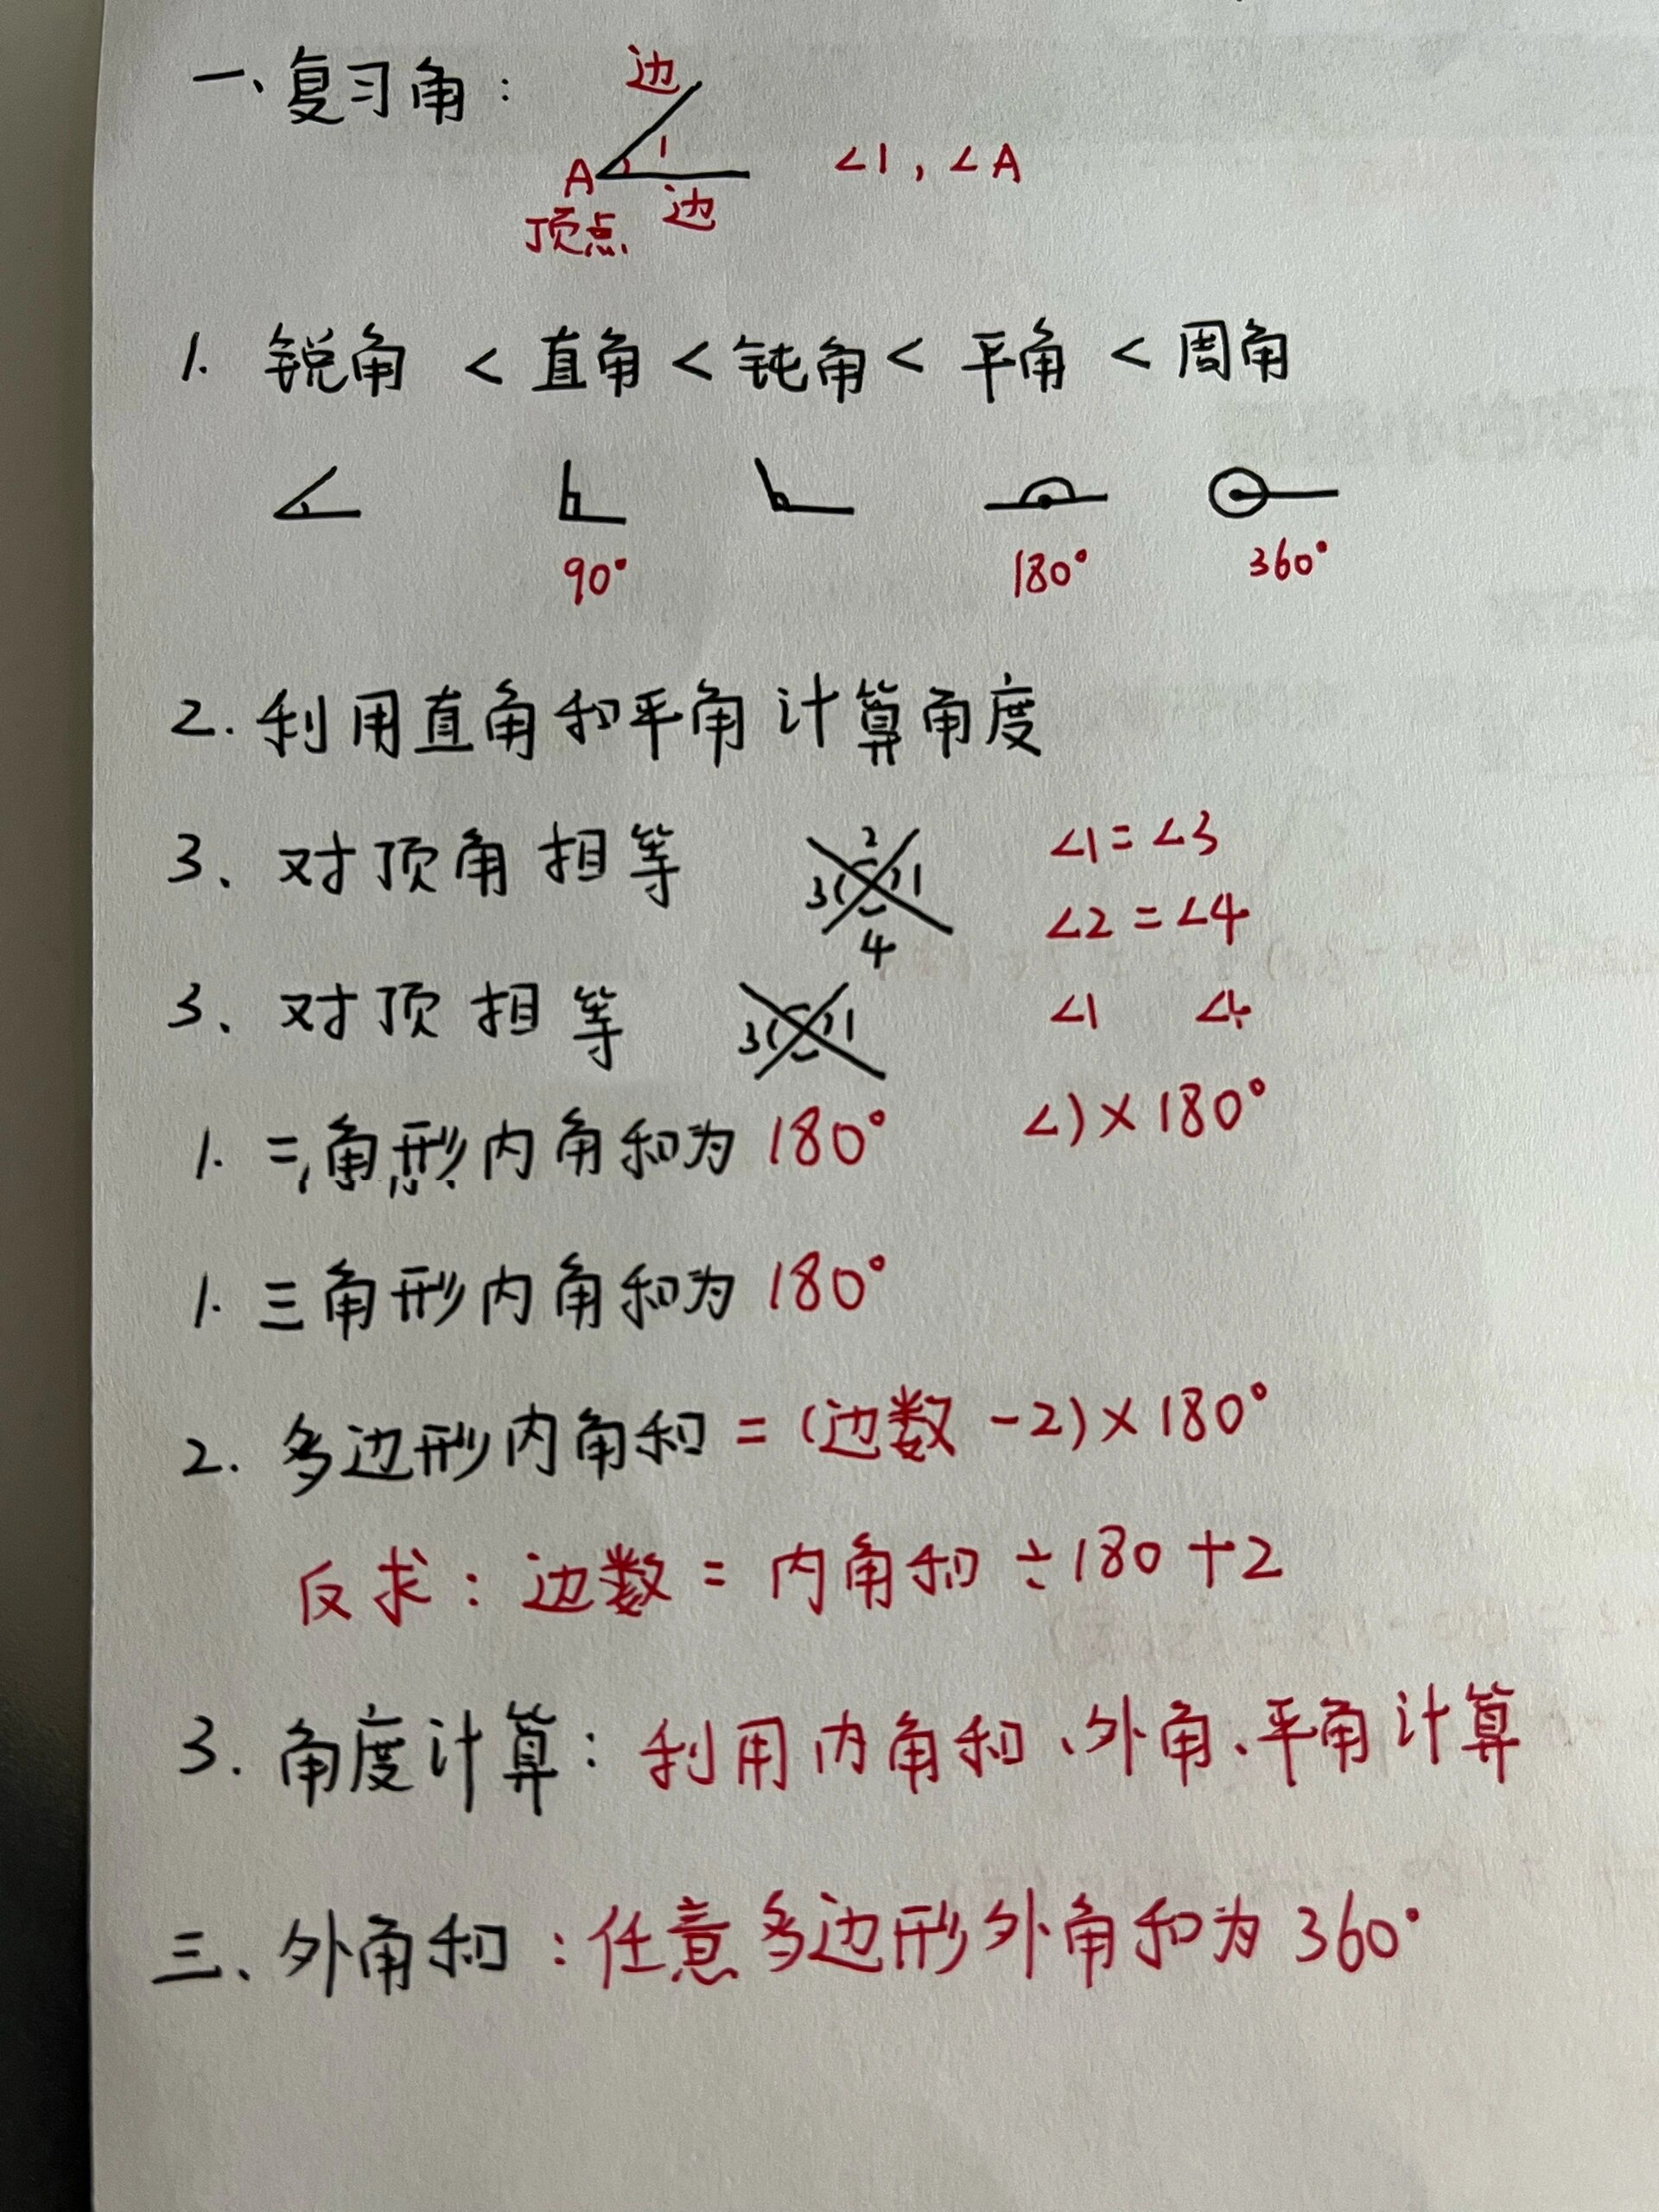 一、复习角：
边
1
A
∠1，∠A
边
顶点
1. 锐角 < 直角 < 钝角 < 平角 < 周角
90° 180° 360°
2. 利用直角和平角计算角度
3、对顶角相等 2 3 1 4 ∠1=∠3
∠2=∠4
3、对顶相等 3 1 ∠1 ∠
1. 角形内角和为 180° ∠)×180°
1. 三角形内角和为 180°
2. 多边形内角和 = (边数 -2)×180°
反求：边数 = 内角和 ÷180+2
3. 角度计算：利用内角和、外角、平角计算
三、外角和：任意多边形外角和为 360°